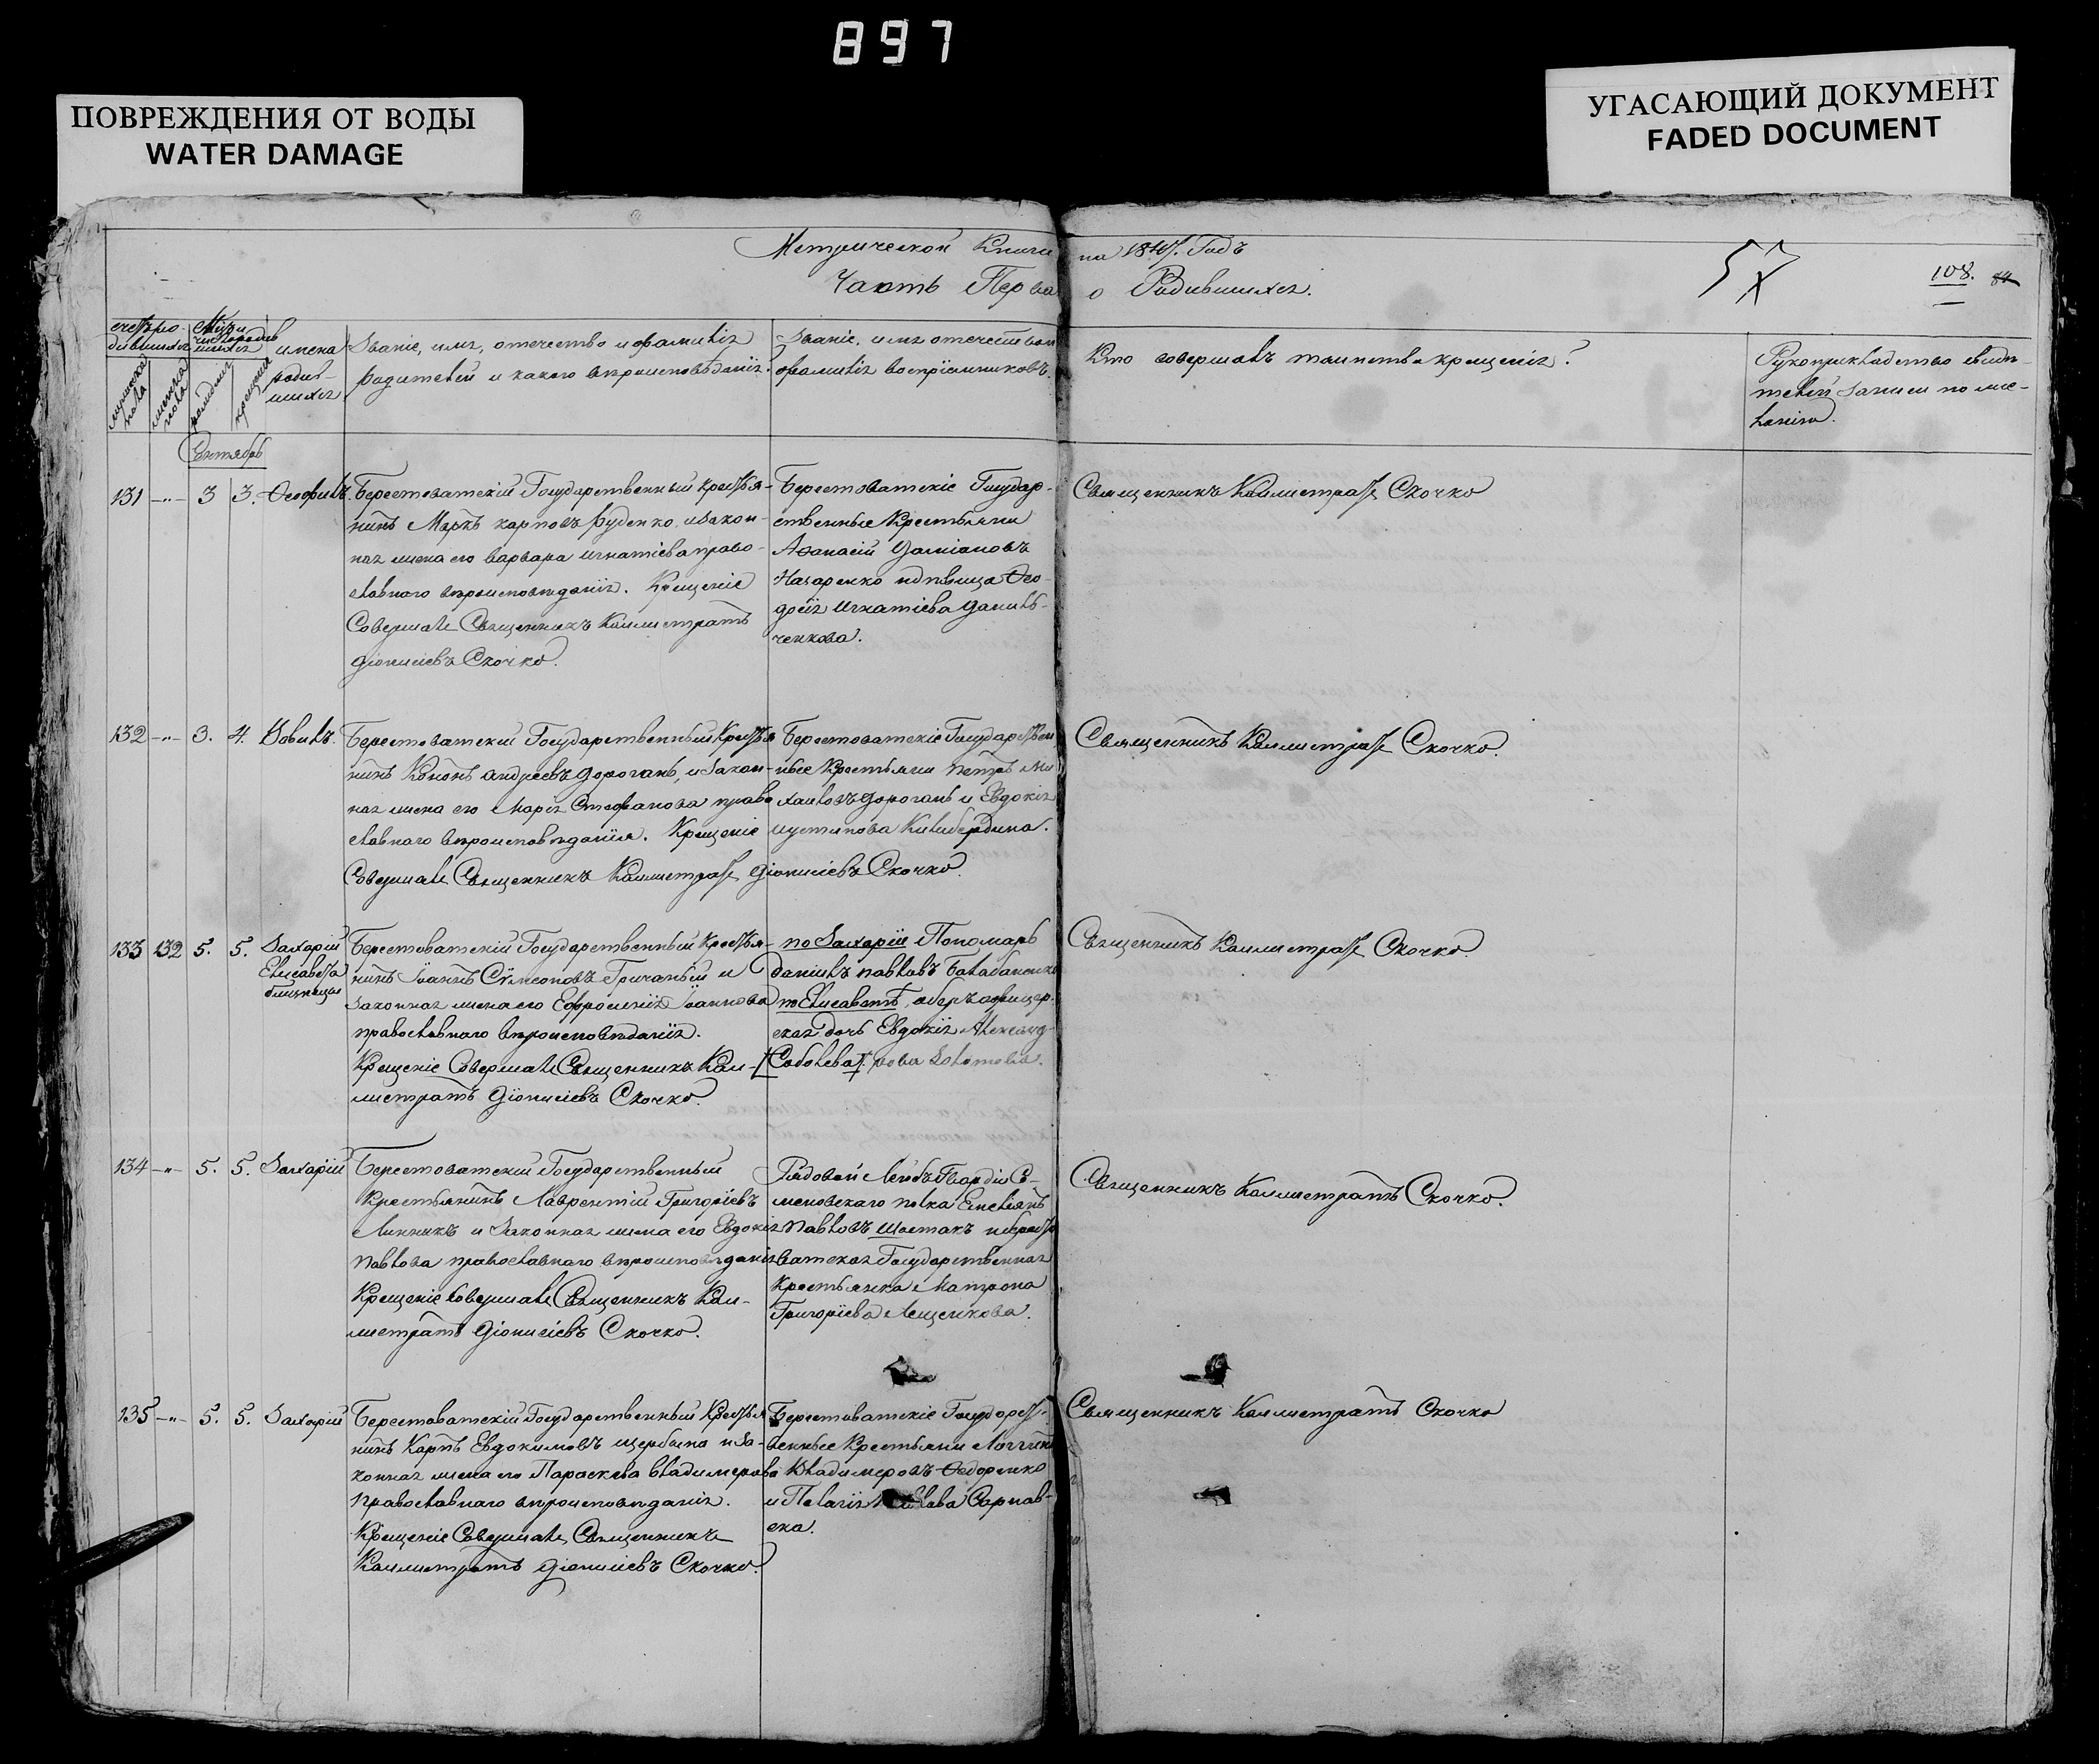 897
ПОВРЕЖДЕНИЯ ОТ ВОДЫ
WATER DAMAGE
УГАСАЮЩИЙ ДОКУМЕНТ
FADED DOCUMENT
Метрической Книги на 184 Годъ
Часть Перва о Родившихся.
57
108.
счетъ ро-
дившихся
мужеска пола
женска пола
рожденія
крещенія
имена
родив-
шихся
Званіе, имя, отечество и фамилія
родителей и какого вѣроисповѣданія.
Званіе, имя отечество и
фамилія воспріемниковъ.
Кто совершалъ таинство крещенія?
Рукоприкладство свидѣ-
телей записи по же-
ланію.
Сентябрь
131 -"- 3 3. Ѳеофилъ
Берестоватскій Государственный Кресть-
нинъ Маркъ Карповъ Руденко, и закон-
ная жена его Варвара Игнатіева право-
славного вѣроисповѣданія. Крещеніе
Совершалъ Священникъ Каллистратъ
Діонисіевъ Скочко.
Берестоватскіе Государ-
ственные Крестьяни
Аѳанасій Даміановъ
Назаренко и дѣвица Ѳео-
досія Игнатіева Даниль-
ченкова.
Священникъ Каллистратъ Скочко
132 -"- 3. 4. Вовилъ.
Берестоватскій Государственный Крестья
нинъ Кононъ Андреевъ Дорогань, и закон-
ная жена его Марія Стефанова право
славного вѣроисповѣданія. Крещеніе
Совершалъ Священникъ Каллистратъ Діонисіевъ Скочко.
Берестоватскіе Государствен
ные Крестьяни Петръ Ми
хаиловъ Дорогань и Евдокія
Иустинова Килибердина.
Священникъ Каллистратъ Скочко.
133 132 5. 5. Захарій
Елисавета
близнецы
Берестоватскій Государственный Крестья-
нинъ Іоаннъ Сѵмеоновъ Гричаный и
законная жена его Ефросинія Іоаннова
православного вѣроисповѣданія.
Крещеніе Совершалъ Священникъ Кал-
листратъ Діонисіевъ Скочко.
по Захаріи Пономарь
Даніилъ Павловъ Балабаненко
по Елисаветѣ, оберъ офицер-
ская дочь Евдокія Александ-
Соболева рова
Священникъ Каллистратъ Скочко.
134 -"- 5. 5. Захарій
Берестоватскій Государственный
Крестьянинъ Лаврентій Григоріевъ
Линникъ и законная жена его Евдокія
Павлова православного вѣроисповѣданія
Крещеніе Совершалъ Священникъ Кал-
листратъ Діонисіевъ Скочко.
Рядовой Лейбъ Гвардіи Се-
меновскаго полка Емеліянъ
Павловъ Шостакъ и бересто
ватская Государственная
Крестьянка Матрона
Григоріева Лещенкова.
Священникъ Каллистратъ Скочко.
135 -"- 5. 5. Захарій
Берестоватскій Государственный Крестья
нинъ Карпъ Евдокимовъ Щербина и за-
конная жена его Параскева Владимерова
Православного вѣроисповѣданія.
Крещеніе Совершалъ Священникъ
Каллистратъ Діонисіевъ Скочко.
Берестоватскіе Государст-
венные Крестьяни Логгинъ
Владимеровъ Ѳедоренко
и Пелагія Сарнав-
ска.
Священникъ Каллистратъ Скочко